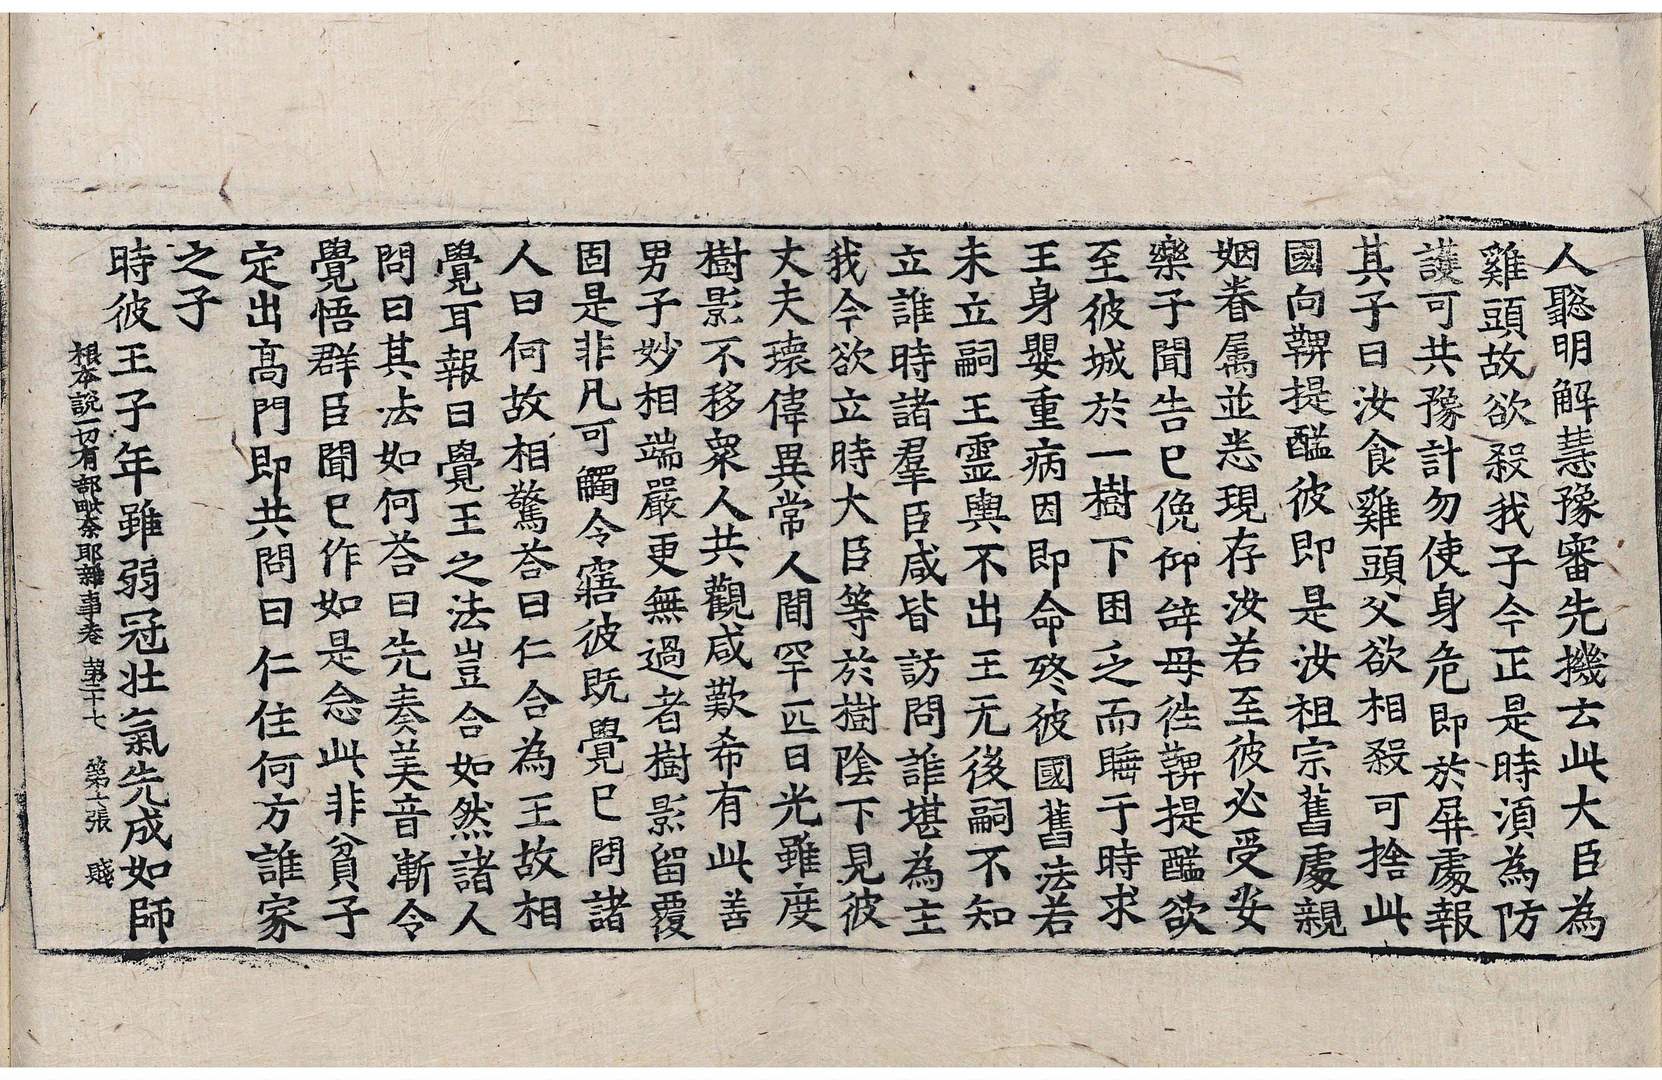 人聡明解慧豫審先機去此大臣為
雞頭故欲殺我子今正是時湏為防
護可共豫計勿使身危即於屏處報
其子曰汝食雞頭父欲相殺可捨此
國向鞞提醯彼即是汝祖宗舊處親
姻眷属並悉現存汝若至彼必受安
樂子聞告已俛仰辞母徃鞞提醯欲
至彼城於一樹下困乏而睡于時求
王身嬰重病因即命終彼國舊法若
未立嗣王靈輿不出王无後嗣不知
立誰時諸羣臣咸皆訪問誰堪為主
我今欲立時大臣等於樹陰下見彼
丈夫瓌偉異常人間罕匹日光雖度
樹影不移衆人共觀咸歎希有此善
男子妙相端嚴更無過者樹影留覆
固是非凡可觸令寤彼既覺已問諸
人曰何故相驚荅曰仁合為王故相
覺耳報曰覺王之法豈合如然諸人
問曰其法如何荅曰先奏美音漸令
覺悟群臣聞已作如是念此非貧子
定出高門即共問曰仁住何方誰家
之子
時彼王子年雖弱冠壯氣先成如師
根本說一切有部毗奈耶雜事卷 第二十七 第六張 賤